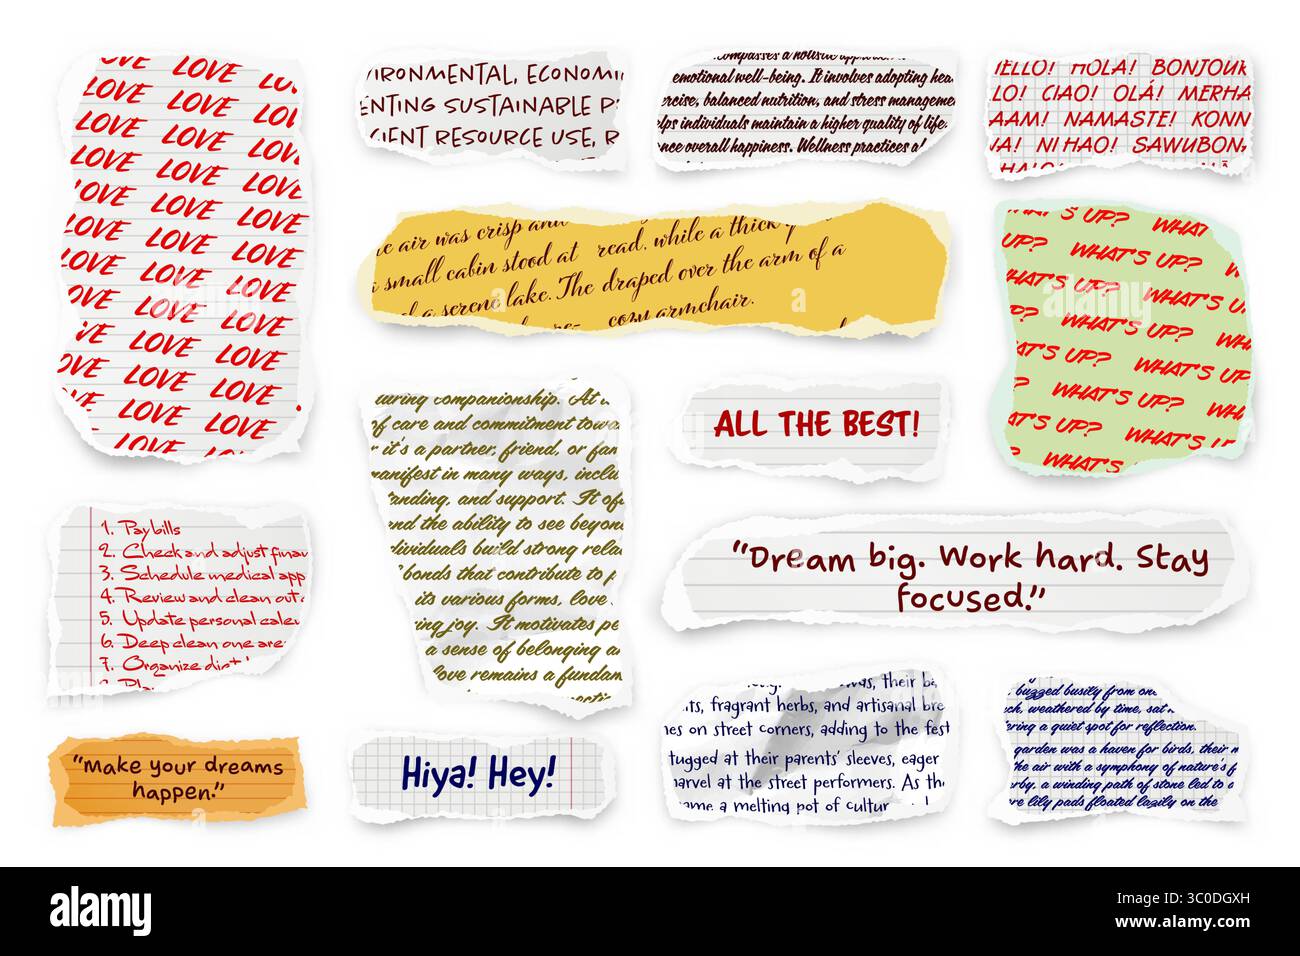 LOVE LOVE
LOVE LOVE LOVE
LOVE LOVE
LOVE LOVE LOVE
LOVE LOVE LOVE
LOVE LOVE LOVE
LOVE LOVE LOVE
LOVE LOVE LOVE
LOVE LOVE LOVE
LOVE LOVE LOVE
LOVE LOVE
LOVE LOVE
LOVE LOVE
LOVE LOVE
IRONMENTAL, ECONOMI
ENTING SUSTAINABLE P
CIENT RESOURCE USE, R
compasses a holistic approach
emotional well-being. It involves adopting hea
ercise, balanced nutrition, and stress manageme
lps individuals maintain a higher quality of life.
nce overall happiness. Wellness practices al
HELLO! HOLA! BONJOUR
LO! CIAO! OLÁ! MERHA
AAM! NAMASTE! KONN
NA! NI HAO! SAWUBON
he air was crisp and read, while a thick
small cabin stood at draped over the arm of a
a serene lake. The cozy armchair.
WHAT'S UP? WHAT
S UP? WHAT'S UP?
WHAT'S UP? WHAT'S UP?
WHAT'S UP? WHAT'S
WHAT'S UP? WHAT'S UP?
WHAT'S UP? WH
WHAT'S UP? WHAT'S U
WHAT'S
uring companionship. At
of care and commitment towa
r it's a partner, friend, or fan
manifest in many ways, inclu
tanding, and support. It of
nd the ability to see beyon
dividuals build strong rela
bonds that contribute to p
its various forms, love
ing joy. It motivates pe
a sense of belonging a
love remains a fundam
ALL THE BEST!
"Dream big. Work hard. Stay
focused."
1. Pay bills
2. Check and adjust finan
3. Schedule medical app
4. Review and clean out
5. Update personal calen
6. Deep clean one are
7. Organize digit
"Make your dreams
happen."
Hiya! Hey!
was, their ba
ts, fragrant herbs, and artisanal bre
es on street corners, adding to the fest
tugged at their parents' sleeves, eager
marvel at the street performers. As th
ame a melting pot of cultur
buzzed busily from one
ch, weathered by time, sat
ering a quiet spot for reflection.
garden was a haven for birds, their
the air with a symphony of nature's
rby, a winding path of stone led to a
ere lily pads floated lazily on the
alamy
alamy
a
a
a
alamy
Image ID: 3C0DGXH
www.alamy.com